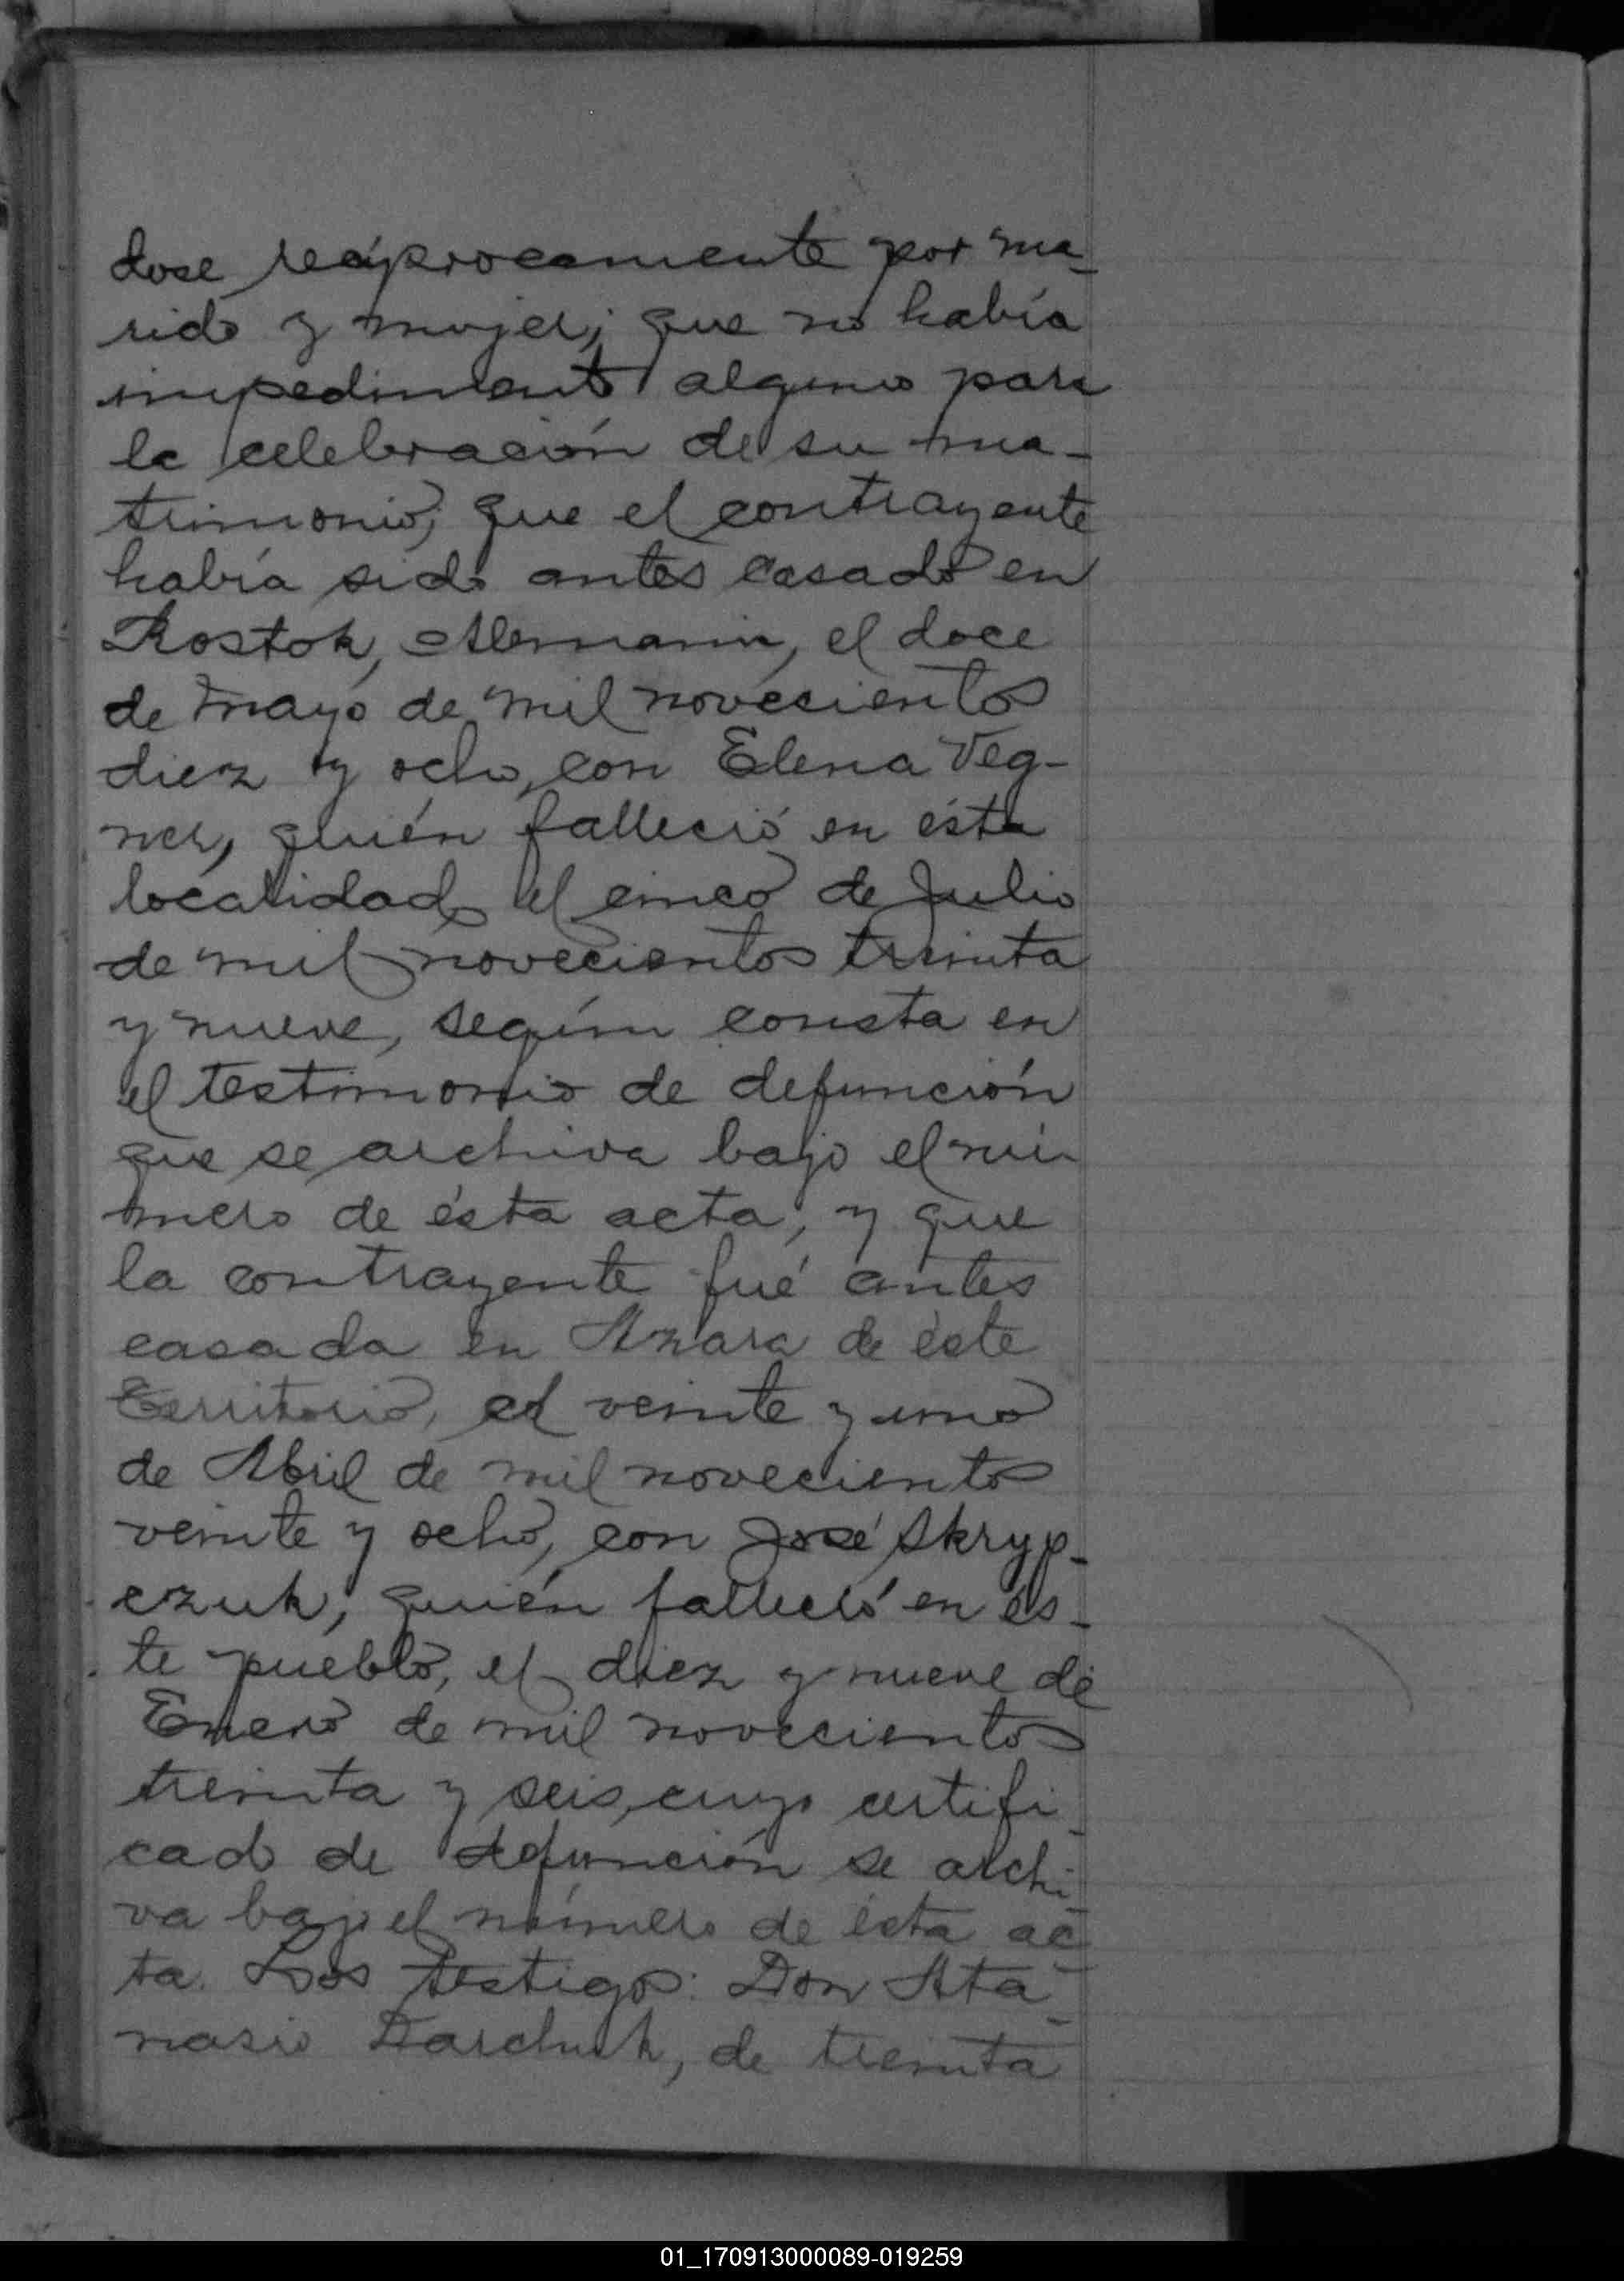 dose recíprocamente por ma-
rido y mujer; que no había
impedimento alguno para
la celebración de su ma-
trimonio; que el contrayente
había sido antes casado en
Rostok, Alemania, el doce
de mayo de mil novecientos
diez y ocho, con Elena Veg-
ner, quién falleció en ésta
localidad el cinco de Julio
de mil novecientos treinta
y nueve, según consta en
el testimonio de defunción
que se archiva bajo el nú
mero de ésta acta; y que
la contrayente fué antes
casada en Azara de éste
Territorio, el veinte y uno
de Abril de mil novecientos
veinte y ocho, con José Skryp-
czuk; quién falleció en és-
te pueblo, el diez y nueve de
Enero de mil novecientos
treinta y seis, cuyo certifi-
cado de defunción se archi-
va bajo el número de ésta ac-
ta. Los testigos: Don Ata-
nasio Darchuk, de treinta
01_170913000089-019259